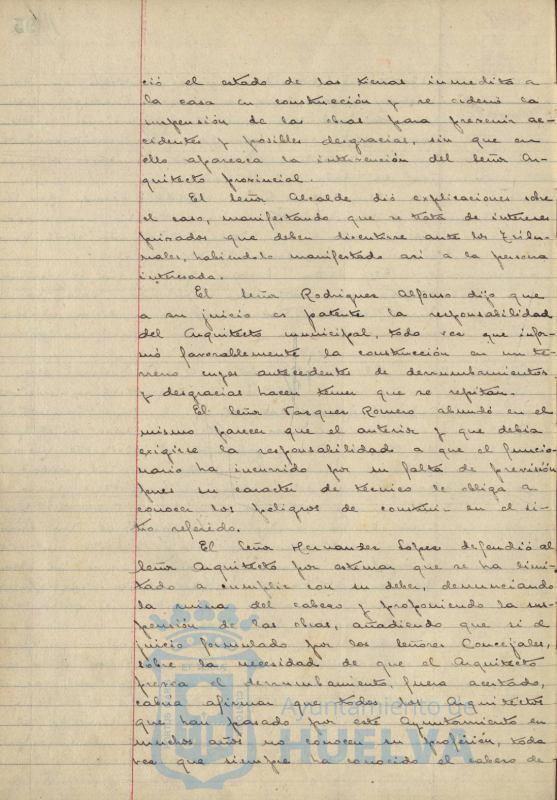 ció el estado de las tierras inmedita a
la casa en construcción y se ordenó la
suspensión de las obras para prevenir ac-
cidentes y posibles desgracias, sin que en
ello aparezca la intervención del Señor Ar-
quitecto provincial.
El Señor Alcalde dió explicaciones sobre
el caso, manifestando que se trata de intereses
privados que deben discutirse ante los Tribu-
nales, habiéndolo manifestado así a la persona
interesada.
El Señor Rodriguez Alfonso dijo que
a su juicio es patente la responsabilidad
del Arquitecto municipal, toda vez que infor-
mó favorablemente la construcción en un te-
rreno cuyos antecedentes de derrumbamientos
y desgracias hacen temer que se repitan.
El Señor Vazquez Romero abundó en el
mismo parecer que el anterior y que debia
exigirse la responsabilidad a que el funcio-
nario ha incurrido por su falta de previsión
pues su caracter de técnico le obliga a
conocer los peligros de construir en el si-
tio referido.
El Señor Hernandez Lopez defendió al
Señor Arquitecto por estimar que se ha limi-
tado a cumplir con su deber, denunciando
la ruina del cabezo y proponiendo la sus-
pensión de las obras, añadiendo que si el
juicio formulado por los señores Concejales,
sobre la necesidad de que el Arquitecto
prevea el derrumbamiento, fuera acertado,
cabria afirmar que todos los Arquitectos
que han pasado por este Ayuntamiento en
muchos años no conocen su profesión, toda
vez que siempre ha conocido el cabezo de
Ayuntamiento de
HUELVA